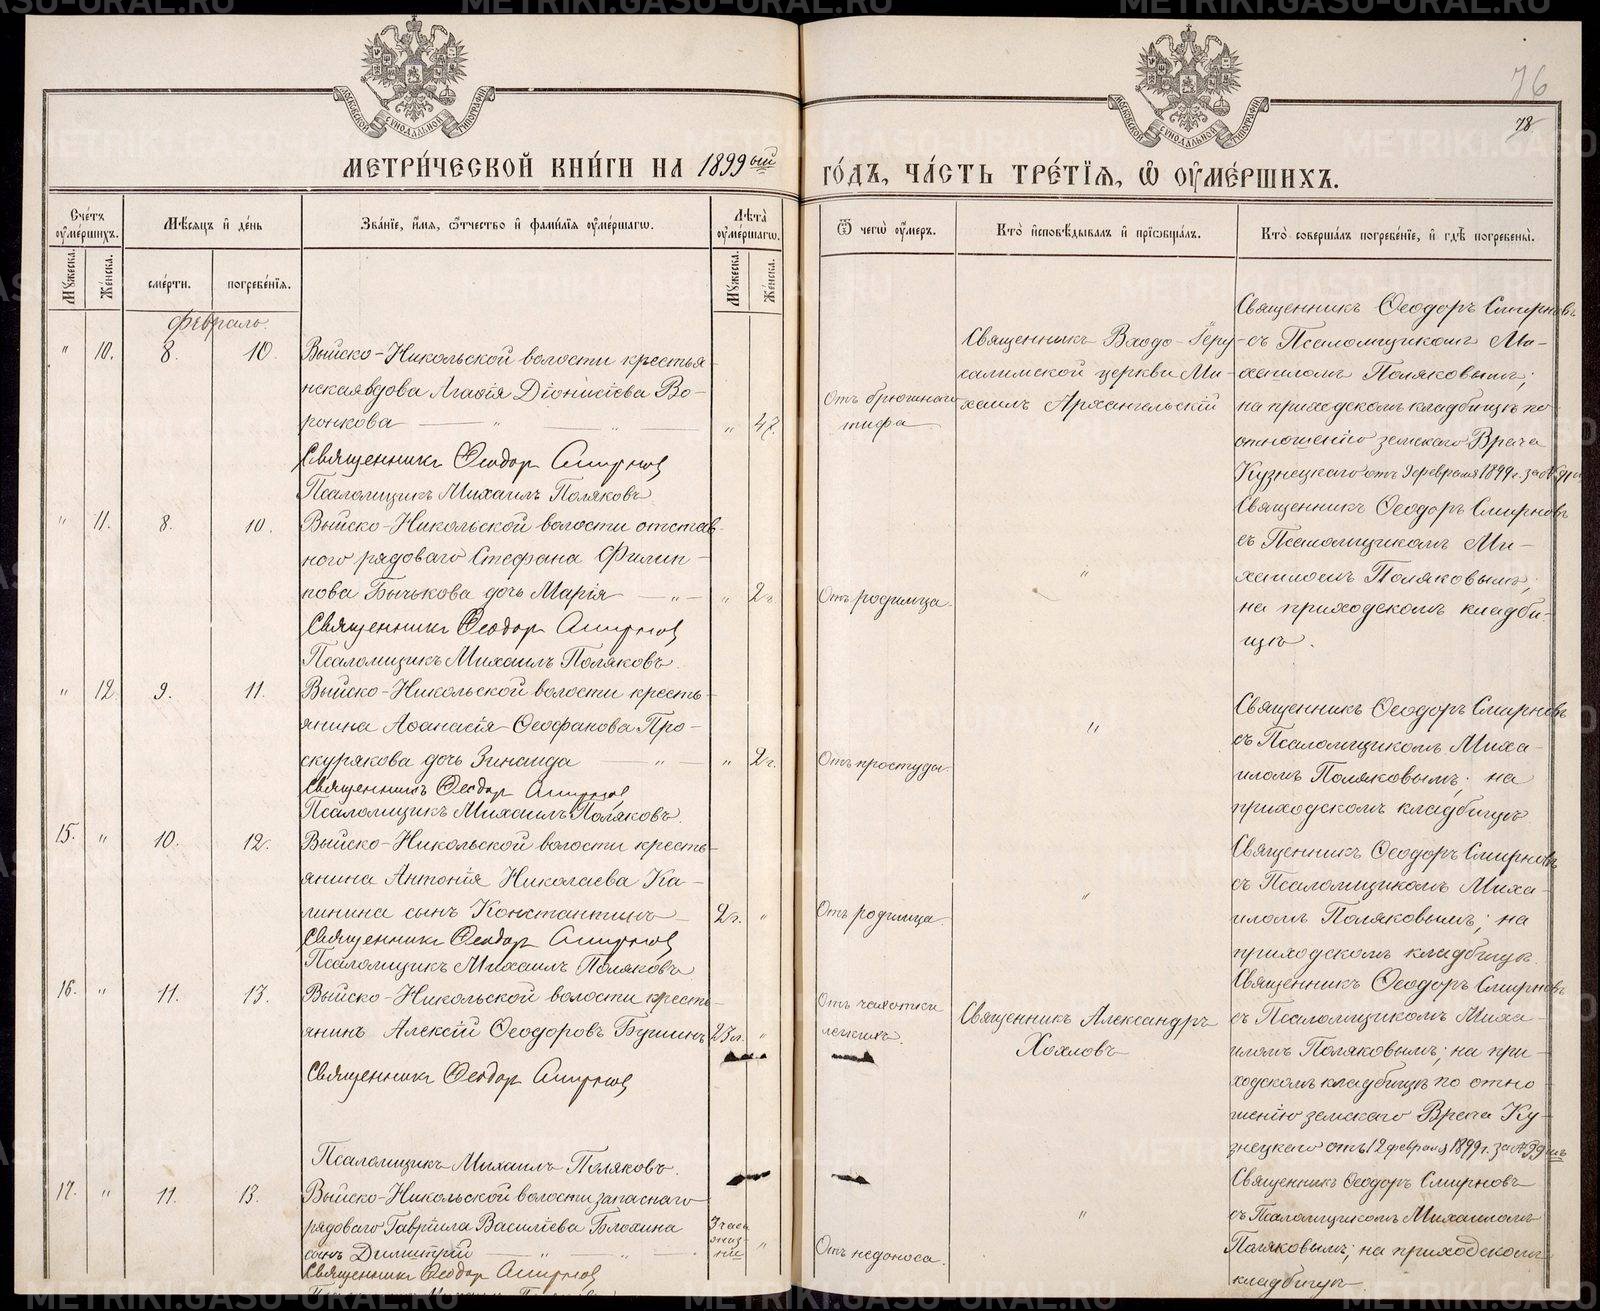 МЕТРИ́ЧЕСКОЙ КНИ́ГИ НА 1899ый ГО́ДЪ, ЧА́СТЬ ТРЕ́ТІѦ, Ѡ҆ ОУ҆МЕ́РШИХЪ.
76
78
Сче́тъ оу҆ме́ршихъ.
Мѣ́сяцъ и҆ де́нь
Зва́нїе, и҆́мѧ, ѻ҆́тчество и҆ фами́лїѧ оу҆ме́ршагѡ.
Лѣ́та оу҆ме́ршагѡ.
Ѿ чегѡ̀ оу҆́меръ.
Кто̀ и҆сповѣ́дывалъ и҆ прїѡбща́лъ.
Кто̀ соверша́лъ погребе́нїе, и҆ гдѣ̀ погребены̀.
Мꙋ́жеска.
Же́нска.
сме́рти.
погребе́нїѧ.
Мꙋ́жеска.
Же́нска.
Февраль.
" 10. 8. 10.
Выйско-Никольской волости крестья-
нская вдова Агафія Діонисіева Во-
ронкова — " — " —
" 47.
Священникъ Ѳеодор Смирнов
Псаломщикъ Михаилъ Поляковъ.
Отъ брюшнаго
тифа
Священникъ Входо-Іеру-
салимской церкви Ми-
хаилъ Архангельскій
Священникъ Ѳеодоръ Смирновъ
съ Псаломщикомъ Ми-
хаиломъ Поляковымъ;
на приходскомъ кладбищѣ по
отношенію земскаго Врача
Кузнецкаго отъ 9 февраля 1899 г. за №
" 11. 8. 10.
Выйско-Никольской волости отстав-
ного рядоваго Стефана Филип-
пова Бычькова дочь Марія — " —
" 2г.
Священникъ Ѳеодор Смирнов
Псаломщикъ Михаилъ Поляковъ.
Отъ родимца.
"
Священникъ Ѳеодоръ Смирновъ
съ Псаломщикомъ Ми-
хаиломъ Поляковымъ;
на приходскомъ кладби-
щѣ.
" 12. 9. 11.
Выйско-Никольской волости кресть-
янина Аѳанасія Ѳеофанова Про-
скурякова дочь Зинаида — " —
" 2г.
Священникъ Ѳеодор Смирнов
Псаломщикъ Михаилъ Поляковъ.
Отъ простуды.
"
Священникъ Ѳеодоръ Смирновъ
съ Псаломщикомъ Миха-
иломъ Поляковымъ; на
приходскомъ кладбищѣ.
15. " 10. 12.
Выйско-Никольской волости кресть-
янина Антонія Николаева Ка-
линина сынъ Константинъ
2г. "
Священникъ Ѳеодор Смирнов
Псаломщикъ Михаилъ Поляковъ
Отъ родимца.
"
Священникъ Ѳеодоръ Смирновъ
съ Псаломщикомъ Миха-
иломъ Поляковымъ; на
приходскомъ кладбищѣ.
16. " 11. 13.
Выйско-Никольской волости кресть-
янинъ Алексій Ѳеодоровъ
23л. "
Священникъ Ѳеодор Смирнов
Псаломщикъ Михаилъ Поляковъ.
Отъ чахотки
легкихъ.
Священникъ Александръ
Хохловъ
Священникъ Ѳеодоръ Смирновъ
съ Псаломщикомъ Миха-
иломъ Поляковымъ; на при-
ходскомъ кладбищѣ по отно-
шенію земскаго Врача Ку-
знецкаго отъ 12 февраля 1899 г. за № 99
17. " 11. 13.
Выйско-Никольской волости запаснаго
рядоваго Гавріила Василіева Блохина
сынъ Димитрій — " — " —
3 часа
жиз-
ни
"
Священникъ Ѳеодор Смирнов
Псаломщикъ Михаилъ Поляковъ
Отъ недоноса.
"
Священникъ Ѳеодоръ Смирновъ
съ Псаломщикомъ Михаиломъ
Поляковымъ; на приходскомъ
кладбищѣ
METRIKI.GASO-URAL.RU